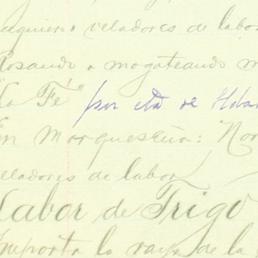 veladores de labor
Rosando o mogoteando
"La Fé" por cta de
En Marqueseña: Nor
veladores de labor
Labor de Trigo
Importa la raya de la